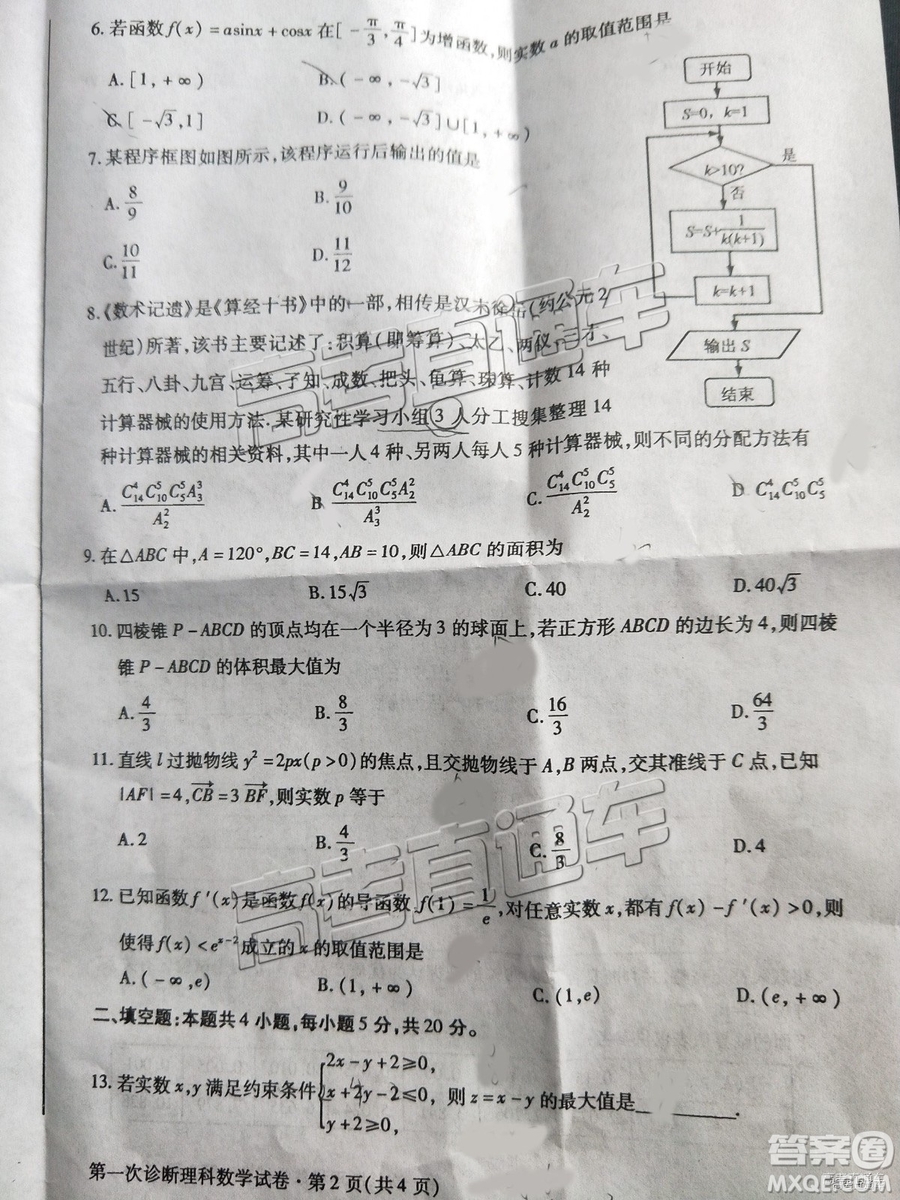 6. 若函数 f(x) = asinx + cosx 在 [ -π/3 , π/4 ] 为增函数, 则实数 a 的取值范围是
A. [1, +∞) B. (-∞, -√3]
C. [-√3, 1] D. (-∞, -√3]∪[1, +∞)
7. 某程序框图如图所示, 该程序运行后输出的值是
A. 8/9 B. 9/10
C. 10/11 D. 11/12
开始
S=0, k=1
k>10?
是
否
S=S+1/k(k+1)
k=k+1
输出 S
结束
8. 《数术记遗》是《算经十书》中的一部, 相传是汉末徐岳(约公元 2
世纪)所著, 该书主要记述了: 积算(即筹算)、太乙、两仪、三才、
五行、八卦、九宫、运筹、了知、成数、把头、龟算、珠算、计数 14 种
计算器械的使用方法. 某研究性学习小组 3 人分工搜集整理 14
种计算器械的相关资料, 其中一人 4 种、另两人每人 5 种计算器械, 则不同的分配方法有
A. C₁₄⁴C₁₀⁵C₅⁵A₃³/A₂² B C₁₄⁴C₁₀⁵C₅⁵A₂²/A₃³ C. C₁₄⁴C₁₀⁵C₅⁵/A₂² D C₁₄⁴C₁₀⁵C₅⁵
9. 在 △ABC 中, A = 120°, BC = 14, AB = 10, 则 △ABC 的面积为
A. 15 B. 15√3 C. 40 D. 40√3
10. 四棱锥 P - ABCD 的顶点均在一个半径为 3 的球面上, 若正方形 ABCD 的边长为 4, 则四棱
锥 P - ABCD 的体积最大值为
A. 4/3 B. 8/3 C. 16/3 D. 64/3
11. 直线 l 过抛物线 y² = 2px(p > 0) 的焦点, 且交抛物线于 A, B 两点, 交其准线于 C 点, 已知
|AF| = 4, CB→ = 3 BF→, 则实数 p 等于
A. 2 B. 4/3 C. 8/3 D. 4
12. 已知函数 f ′(x) 是函数 f(x) 的导函数, f(1) = 1/e, 对任意实数 x, 都有 f(x) - f ′(x) > 0, 则
使得 f(x) < eˣ⁻² 成立的 x 的取值范围是
A. (-∞, e) B. (1, +∞) C. (1, e) D. (e, +∞)
二、填空题: 本题共 4 小题, 每小题 5 分, 共 20 分。
13. 若实数 x, y 满足约束条件 { 2x - y + 2 ≥ 0, x + 2y - 2 ≤ 0, y ≥ 0, 则 z = x - y 的最大值是________.
第一次诊断理科数学试卷 · 第 2 页(共 4 页)
高考直通车
高考直通车
答案圈
MXQE.COM